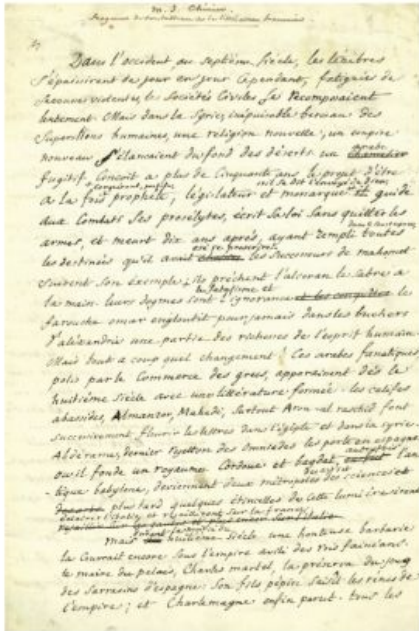 M. J. Chénier.
Fragment
Dans l'occident au septième Siècle, les ténèbres
s'épaississent de jour en jour Cependant, fatiguées de
Secousses violentes, les Sociétés Civiles se recomposaient
lentement. Mais dans la Syrie, inépuisable berceau des
Superstitions humaines, une religion nouvelle, un empire
nouveau s'élancaient du fond des déserts. un arabe
fugitif Conçoit a plus de Cinquante ans le projet d'être
a la fois prophète, conquérant, pontife, législateur et monarque il se dit l'envoyé de dieu, guide
aux Combats Ses proselytes, écrit Sa loi Sans quitter les
armes, et meurt dix ans après, ayant rempli toutes
les destinées qu'il avait les Successeurs de mahomet
Suivent Son exemple; ils prêchent l'alcoran le Sabre a
la main. leurs dogmes sont le fatalisme et l'ignorance
farouche omar engloutit pour jamais dans les buchers
d'alexandrie une partie des richesses de l'esprit humain.
Mais tout a coup quel changement! Ces arabes fanatiques,
polis par le Commerce des grecs, apparaissent dès le
huitième Siècle avec une littérature formée. les califes
abassides, Almanzor, Mahadi, Surtout Aron-al raschid font
successivement fleurir les lettres dans l'égypte et dans la syrie.
Abdérame, dernier rejetton des Omniades les porte en espagne
où il fonde un royaume. Cordoue et bagdat, l'an
-tique babylone, deviennent deux métropoles des sciences et
plus tard quelques étincelles de cette lumière iront
éclairer l'italie et rejailliront sur la france.
mais huitième Siècle une honteuse barbarie
la Couvrait encore Sous l'empire avili des rois fainéans.
le maire du palais, Charles martel, la préserva du joug
des Sarrasins d'espagne; Son fils pépin Saisit les rênes de
l'empire; et Charlemagne enfin parut. tous les